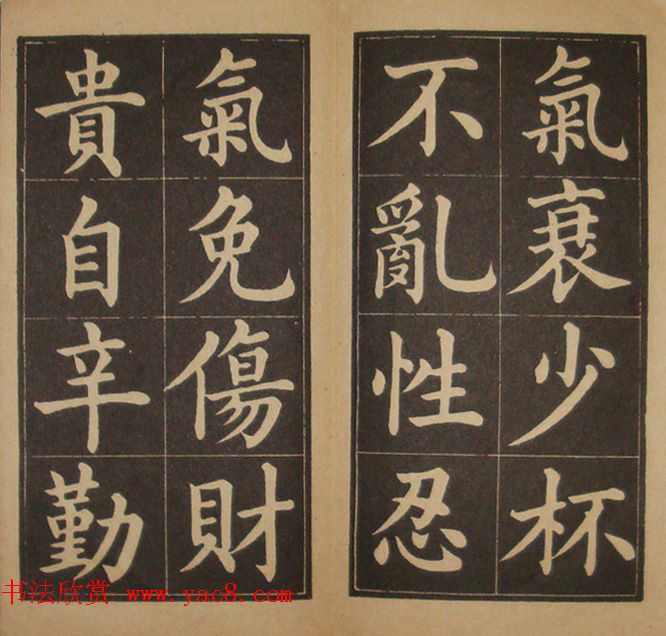 氣衰少杯
不亂性忍
氣免傷財
貴自辛勤
书法欣赏 www.yac8.com